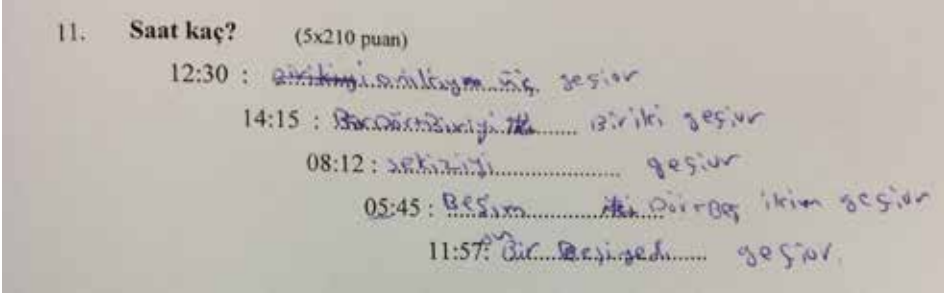 11. Saat kaç? (5x210 puan)
12:30 : onikiym üç geşior
14:15 : Biriki geşior
08:12 : sekiziyi geşior
05:45 : Beşim DörtBeş ikim geşior
11:57: on Bir Beşiyedi geşior.